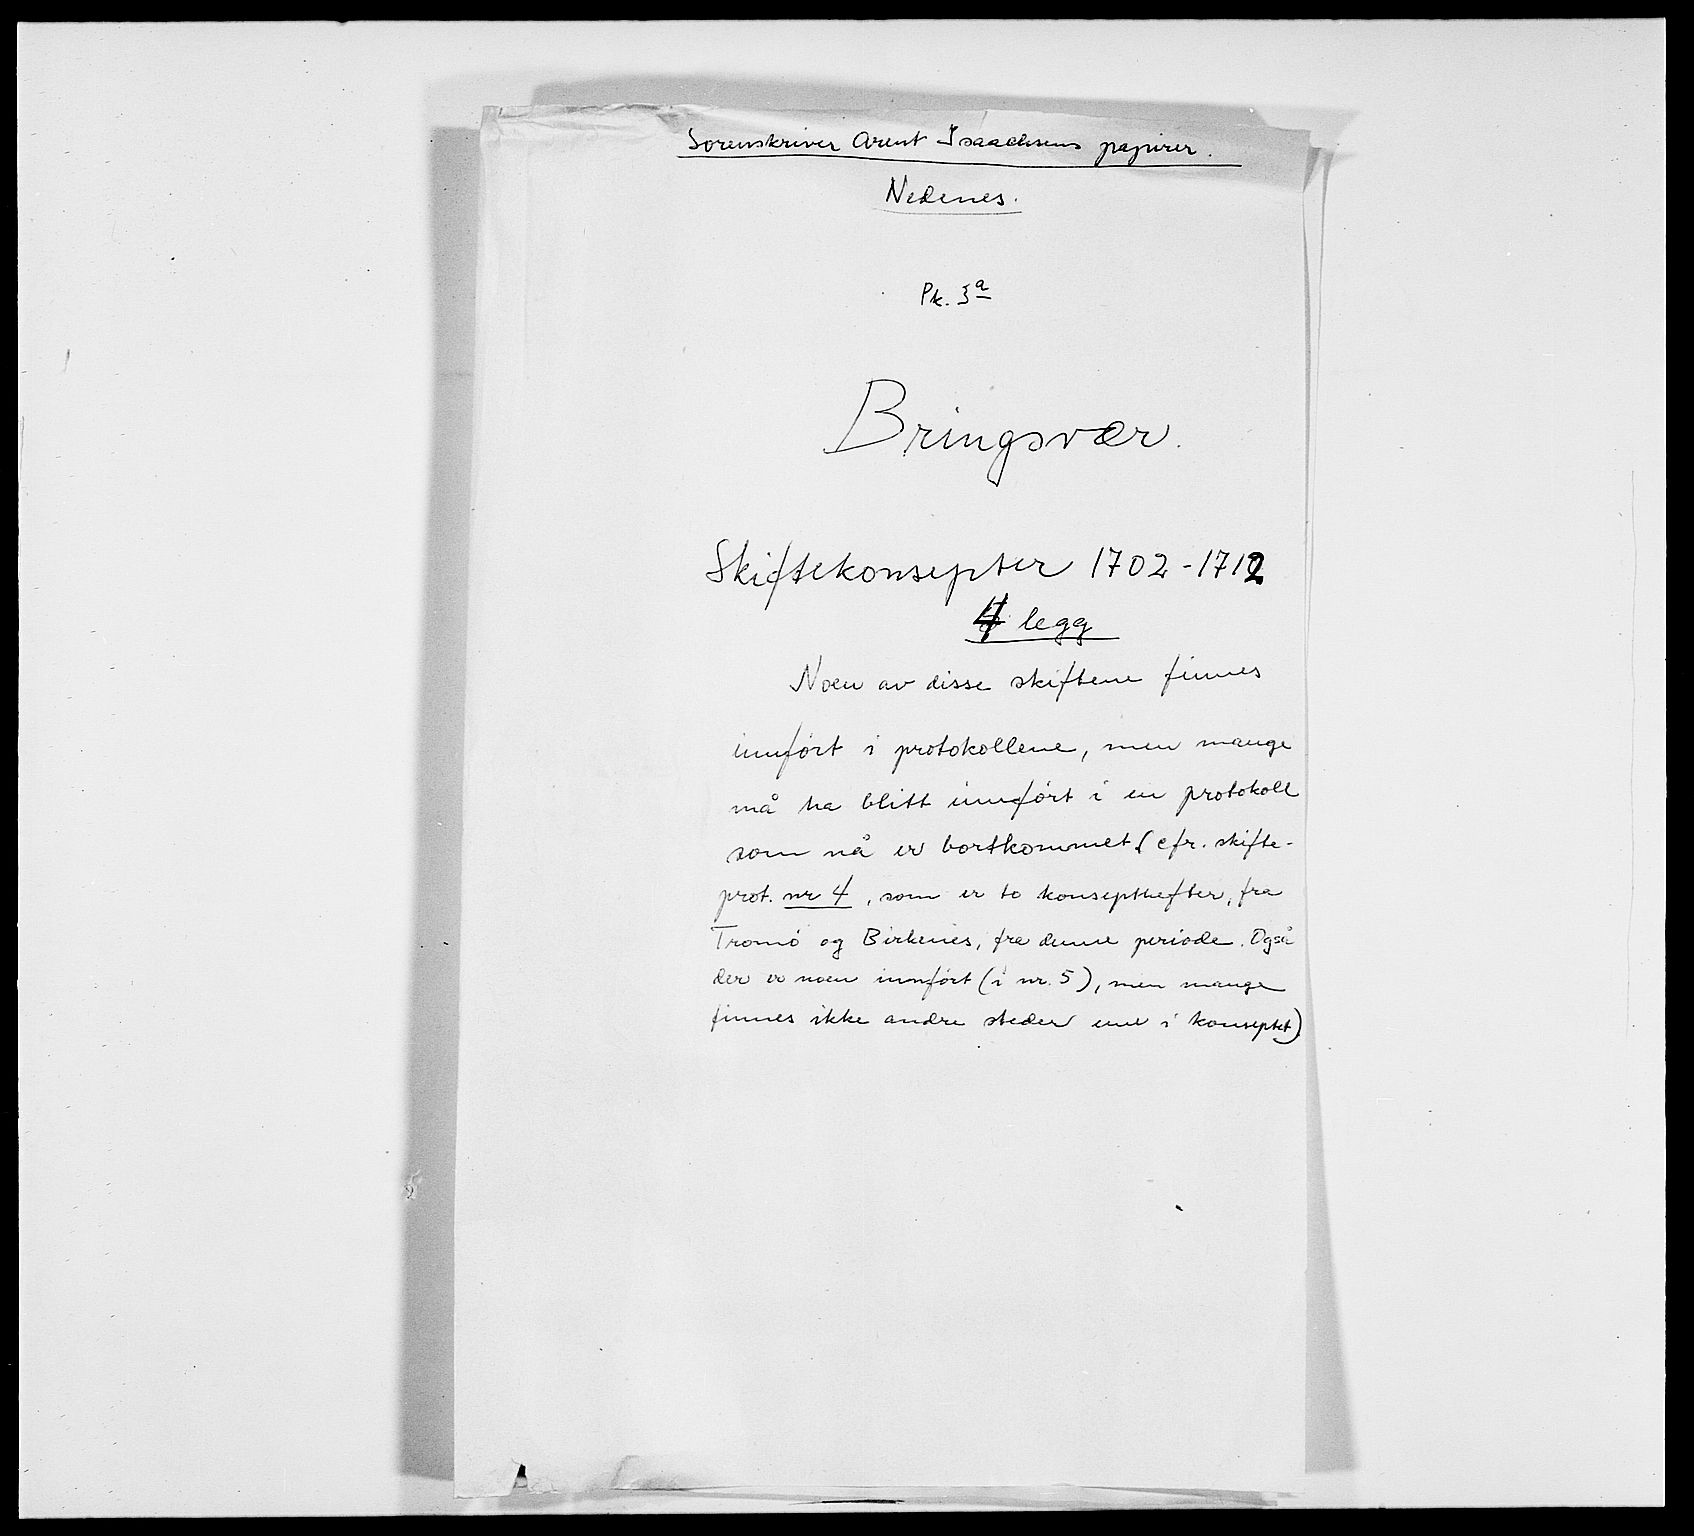 Sorenskriver Arent Isaachsens papirer.
Nedenes.
Pk. 3a
Bringsvær.
Skiftekonsepter 1702-1712
4 legg
Noen av disse skiftene finnes
innført i protokollene, men mange
må ha blitt innført i en protokoll
som nå er bortkommet (cfr. skifte-
prot. nr 4, som er to konsepthefter, fra
Tromö og Birkenes, fra denne periode. Også
der er noen innført (i nr. 5), men mange
finnes ikke andre steder enn i konseptet)